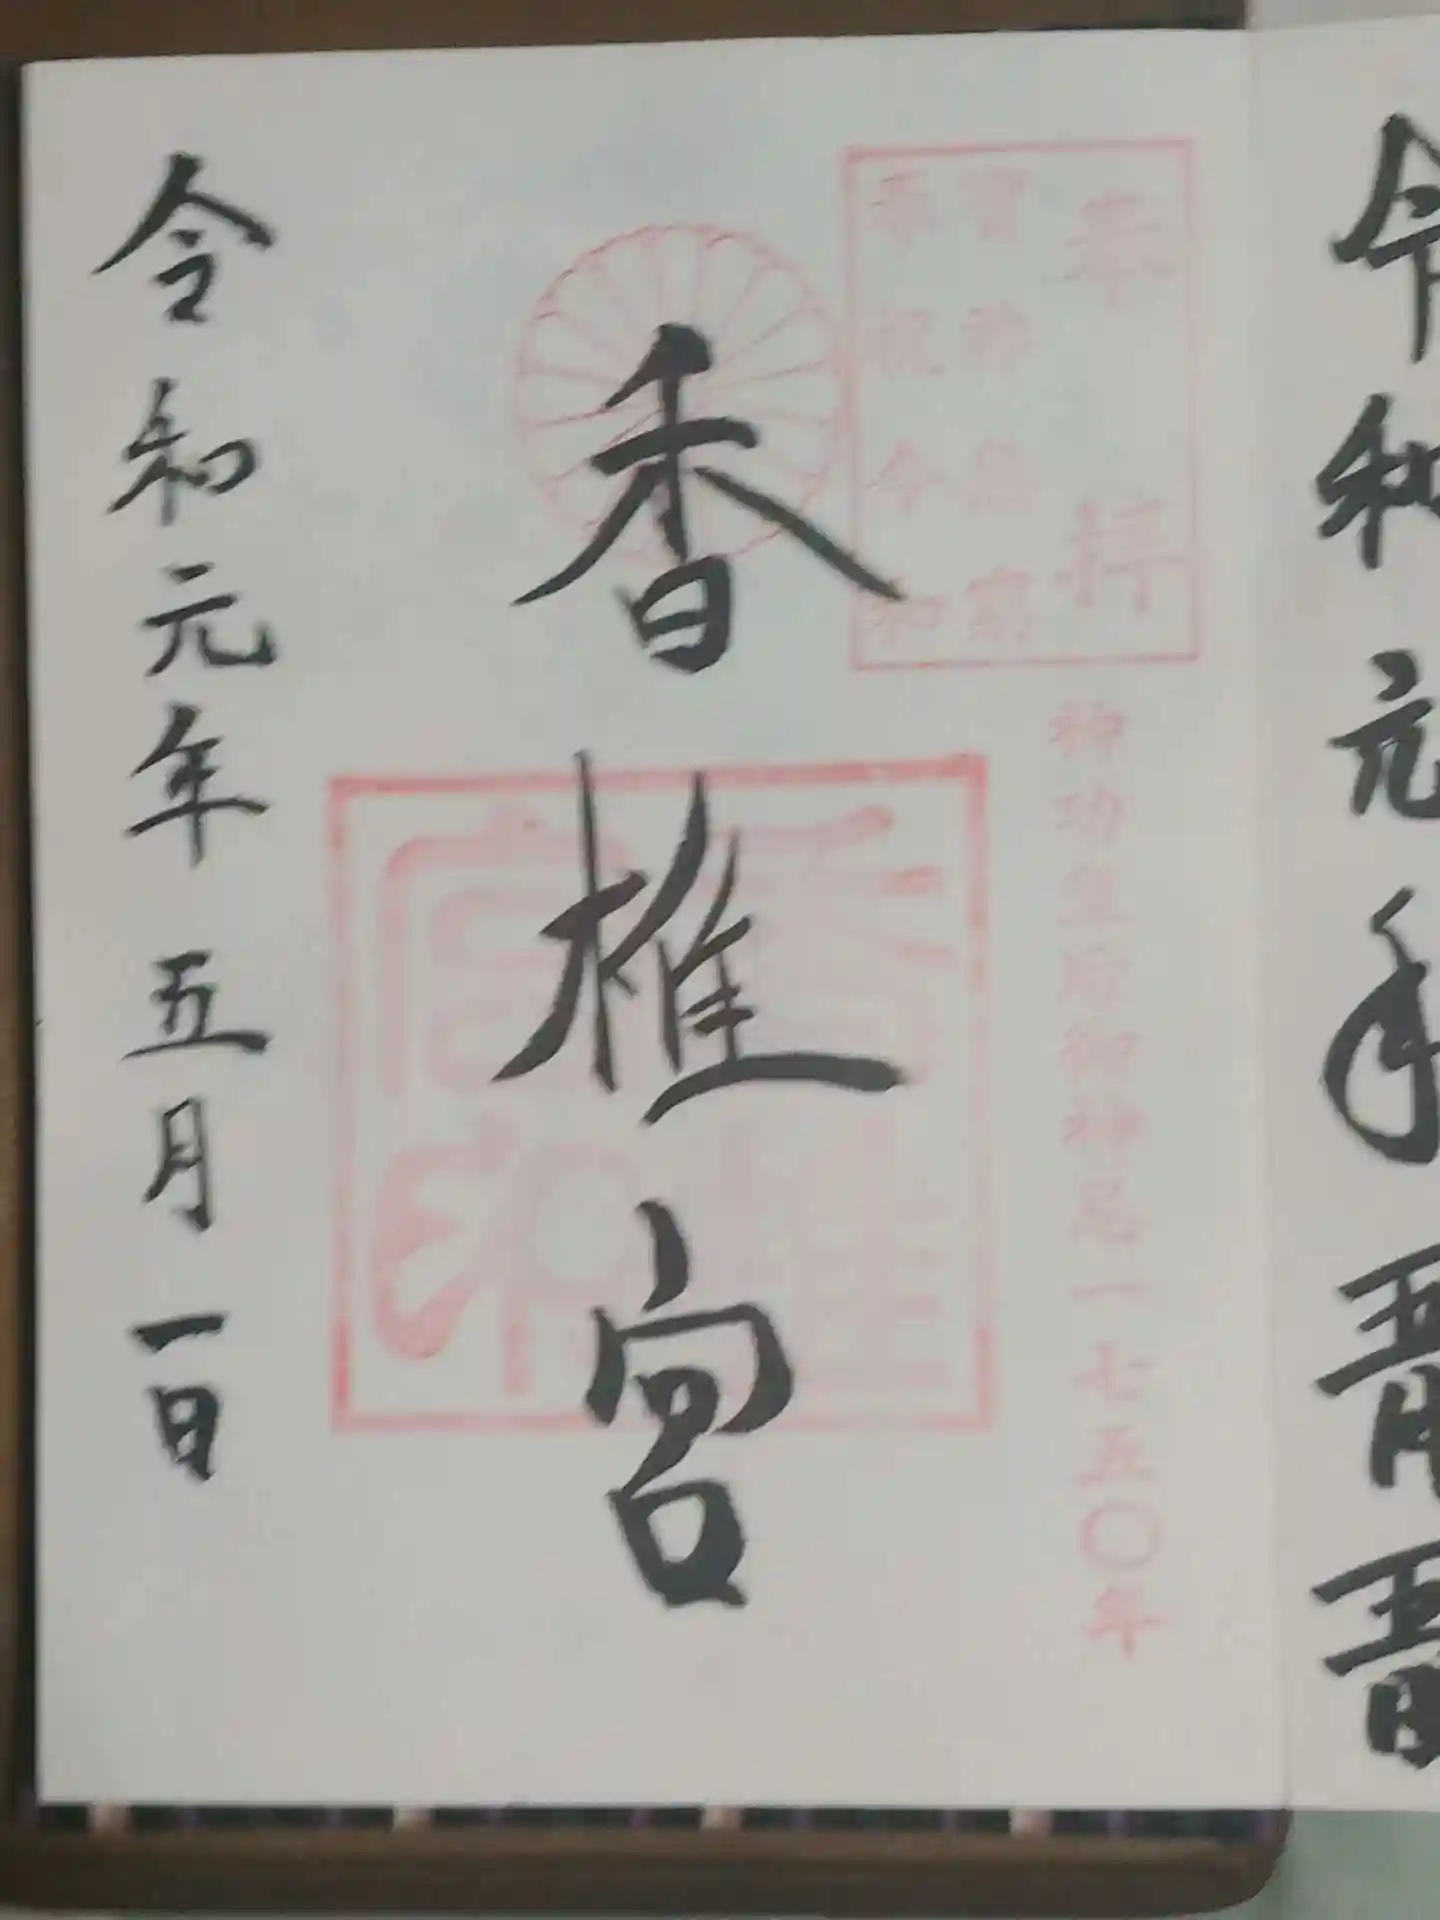 奉拝
奉祝令和
神功皇后御神忌一七五〇年
香椎宮
香椎宮印
令和元年五月一日
令和元年